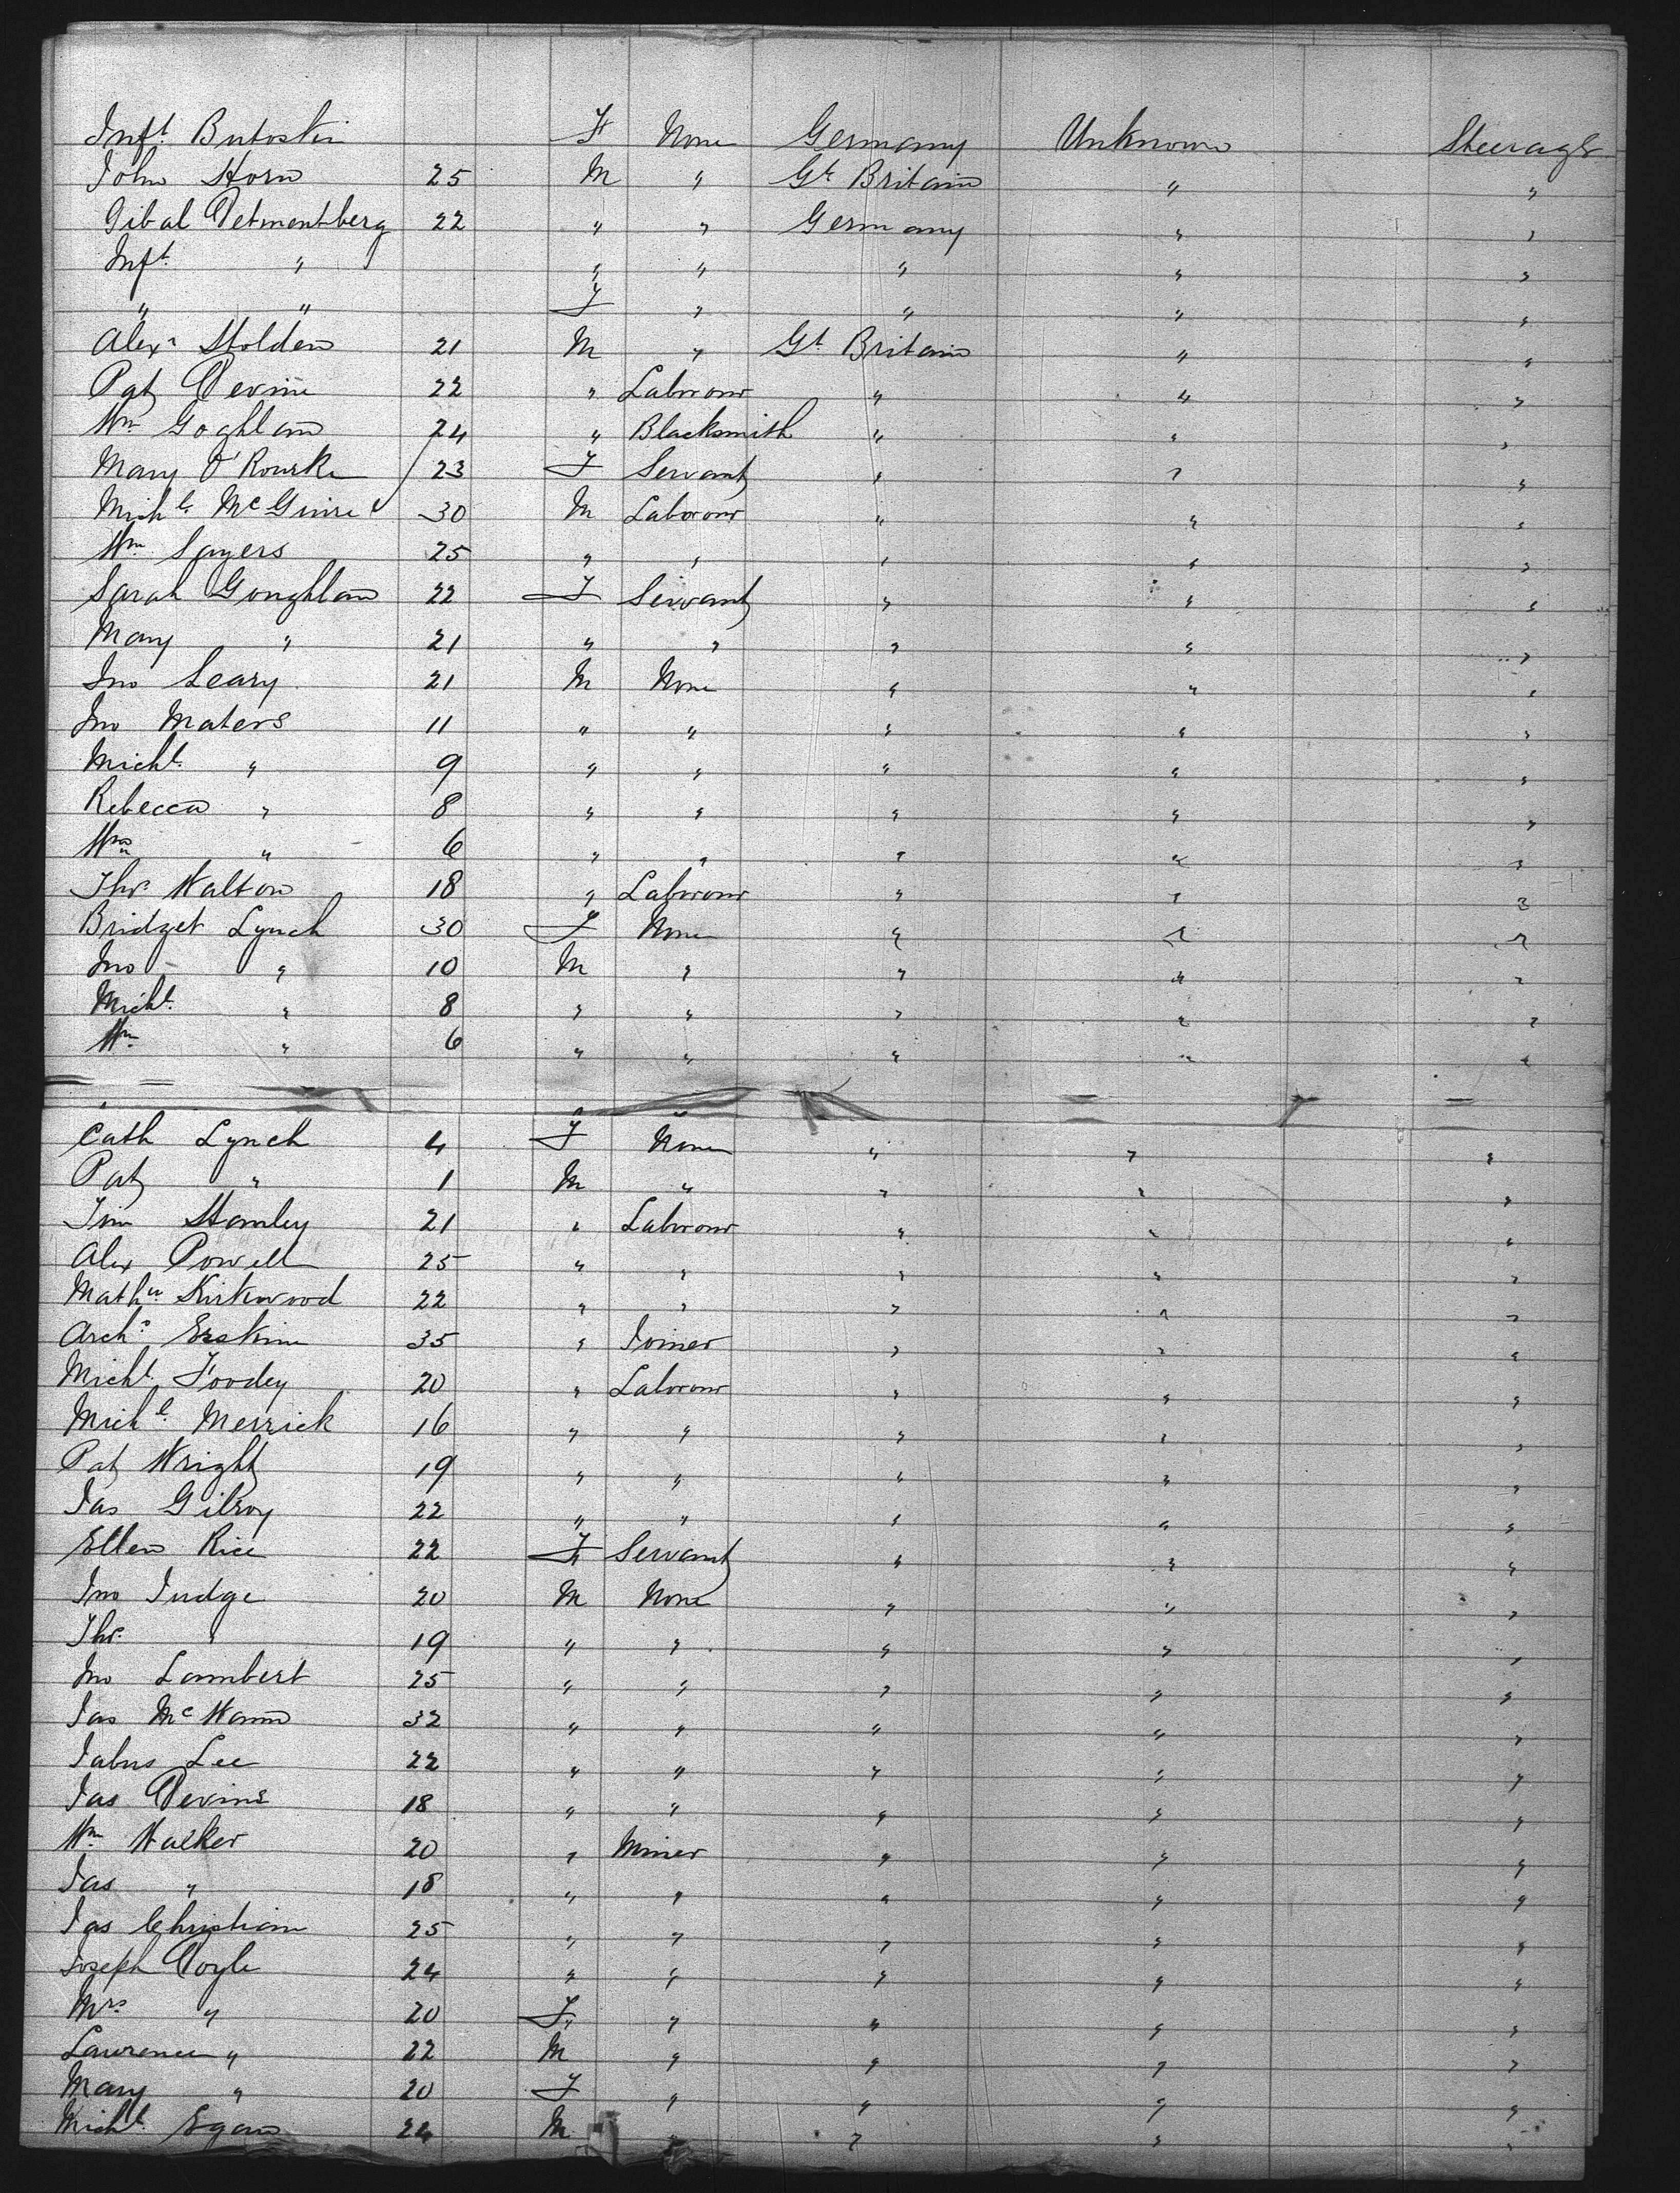 Inft Butoskin F None Germany Unknown Steerage
John Horn 25 M " Gt Britain " "
Gibal Detmentberg 22 " " Germany " "
Inft " " " " " "
" " F " " " "
Alexr Holden 21 M " Gt Britain " "
Pat Devine 22 " Labrour " " "
Wm Goghlan 24 " Blacksmith " " "
Mary O'Rourke 23 F Servant " " "
Michl McGuire 30 M Labrour " " "
Wm Sayers 25 " " " " "
Sarah Goughlan 22 F Servant " " "
Mary " 21 " " " " "
Jno Leary 21 M None " " "
Jno Maters 11 " " " " "
Michl " 9 " " " " "
Rebecca " 8 " " " " "
Wm " 6 " " " " "
Thos Walton 18 " Labrour " " "
Bridget Lynch 30 F None " " "
Jno " 10 M " " " "
Michl " 8 " " " " "
Wm " 6 " " " " "
Cath Lynch 4 F None " " "
Pat " 1 M " " " "
Jim Hanley 21 " Labrour " " "
Alex Powell 25 " " " " "
Mathw Kirkwood 22 " " " " "
Archd Erskine 35 " Joiner " " "
Michl Foodey 20 " Labrour " " "
Michl Merrick 16 " " " " "
Pat Wright 19 " " " " "
Jas Gilroy 22 " " " " "
Ellen Rice 22 F Servant " " "
Jno Judge 20 M None " " "
Thos " 19 " " " " "
Jno Lambert 25 " " " " "
Jas McWann 32 " " " " "
Jabus Lee 22 " " " " "
Jas Devine 18 " " " " "
Wm Walker 20 " Miner " " "
Jas " 18 " " " " "
Jas Christian 25 " " " " "
Joseph Doyle 24 " " " " "
Mrs " 20 F " " " "
Lawrence " 22 M " " " "
Mary " 20 F " " " "
Michl Egan 24 M " " " "